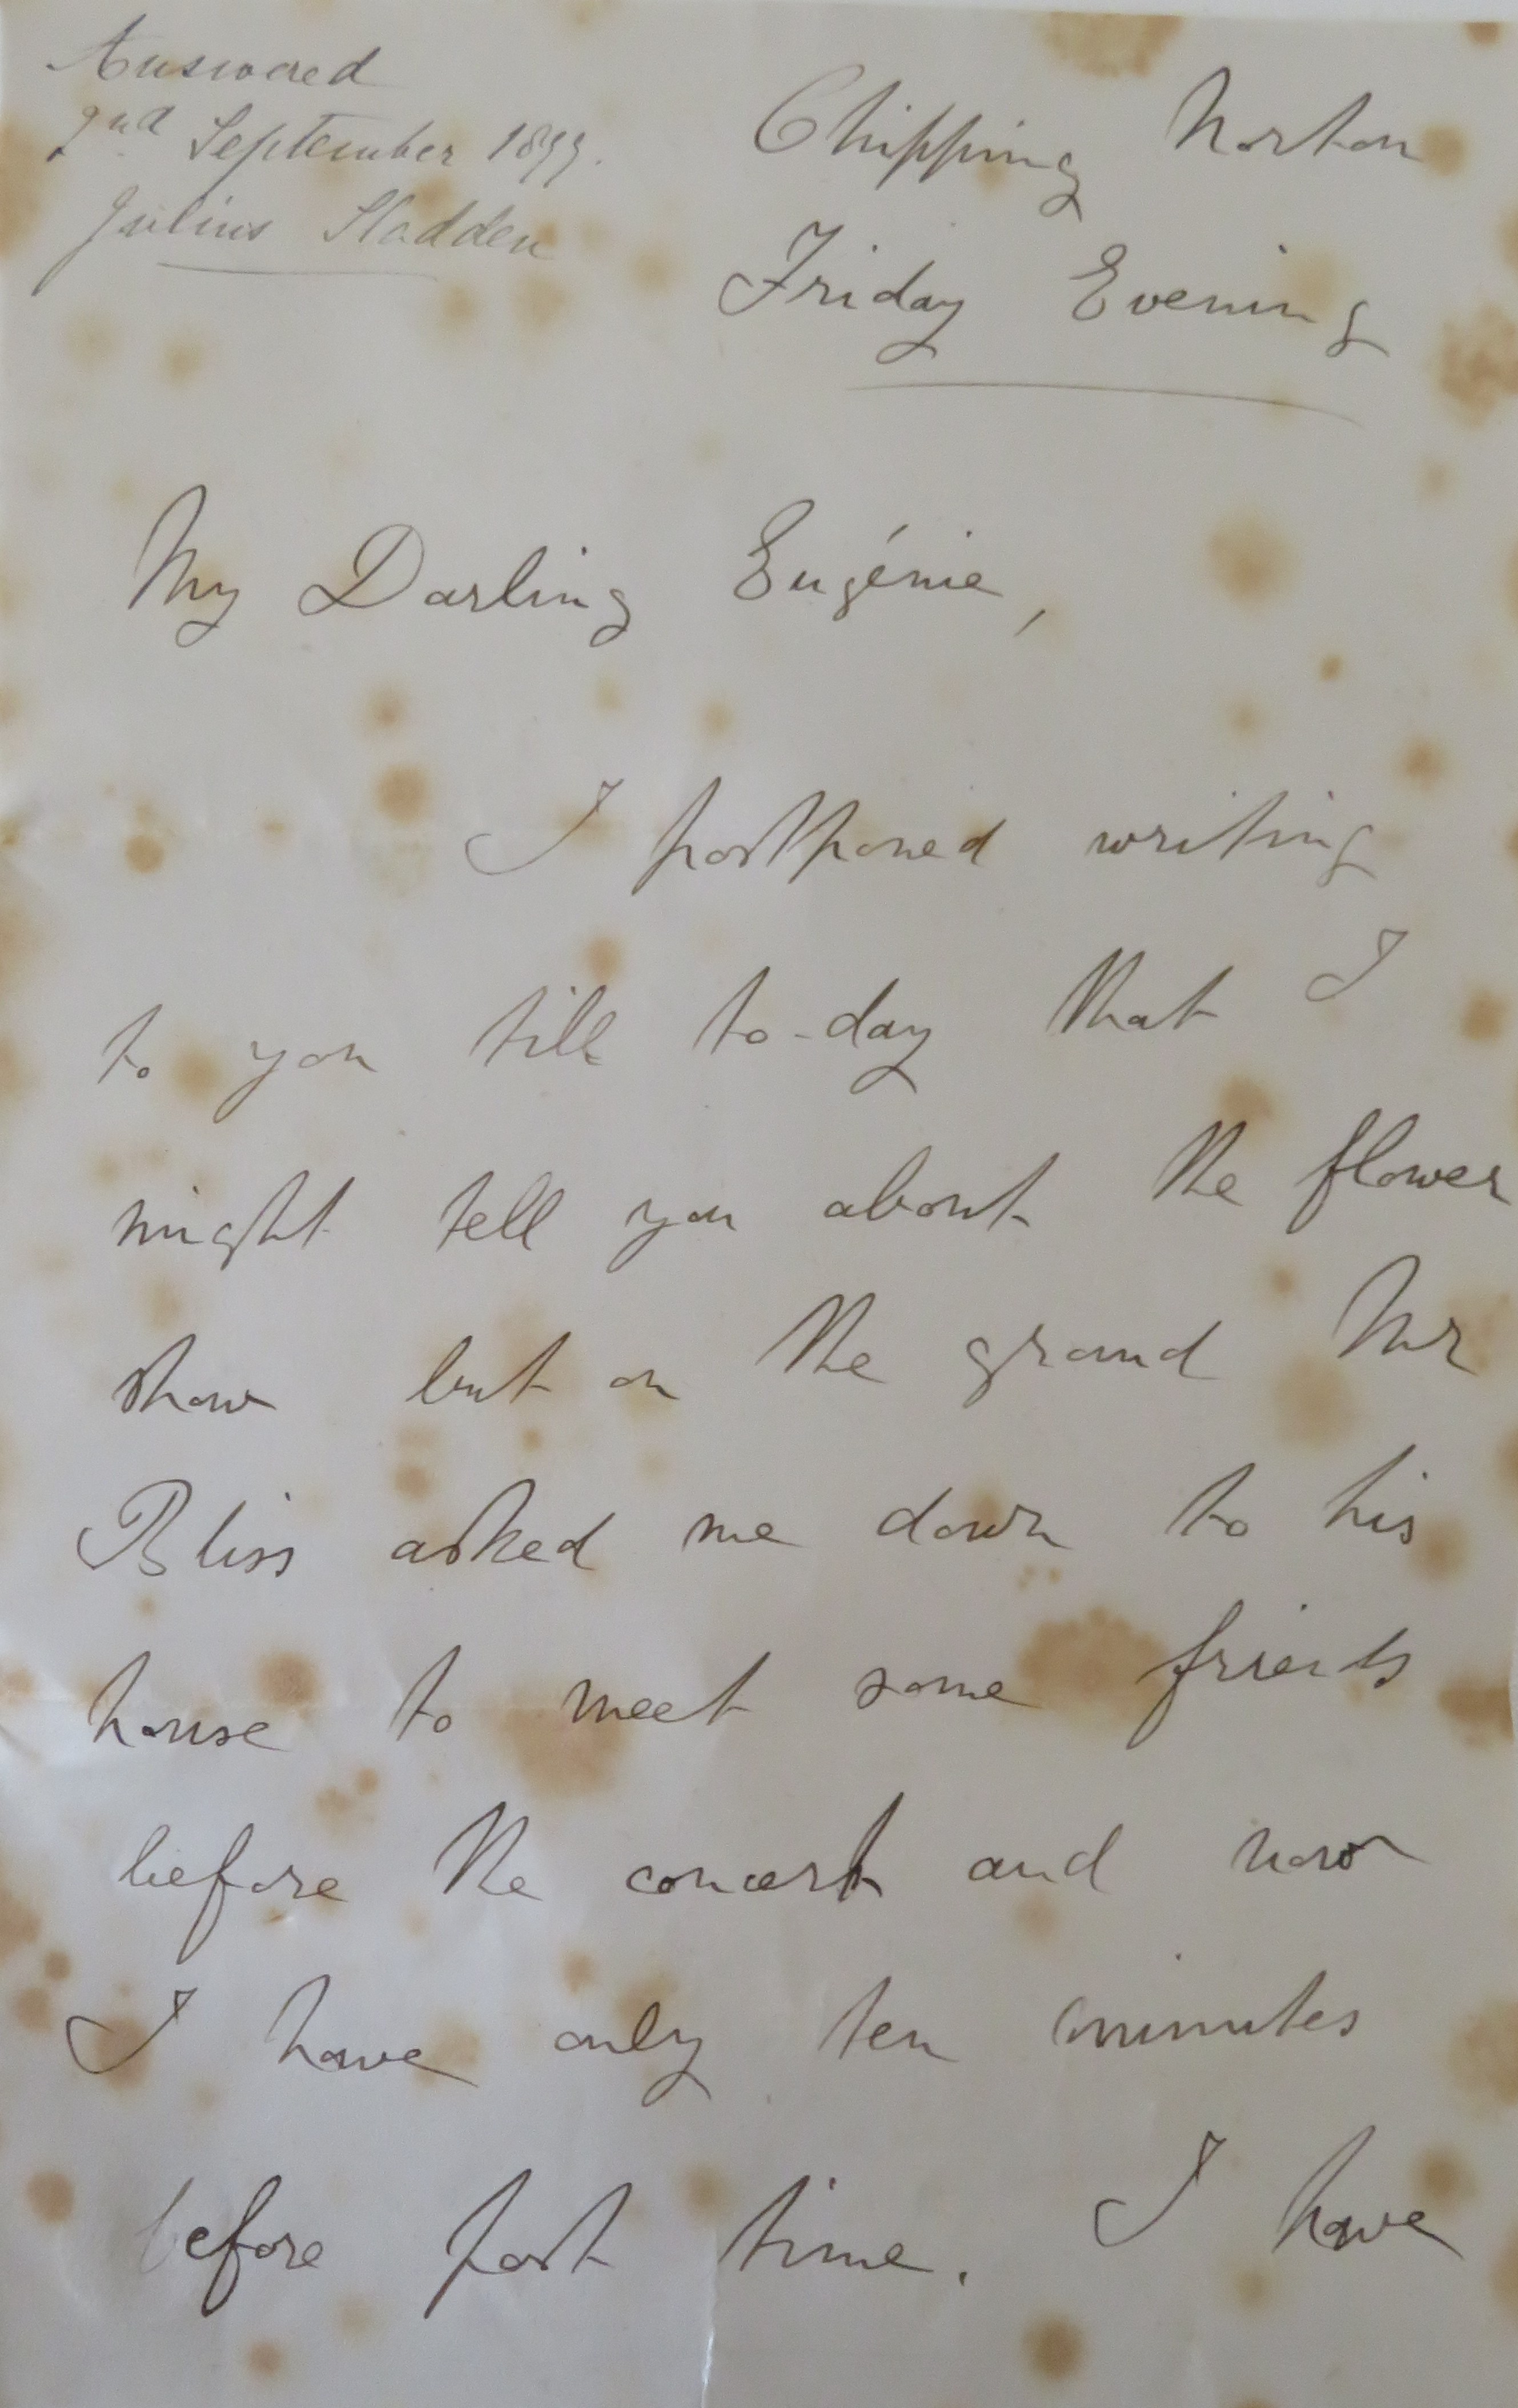 Answered
2nd September 1877.
Julius Sladden
Chipping Norton
Friday Evening
My Darling Eugénie,
I postponed writing
to you till to-day that I
might tell you about the flower
show but on the ground Mr
Bliss asked me down to his
house to meet some friends
before the concert and now
I have only ten minutes
before post time. I have